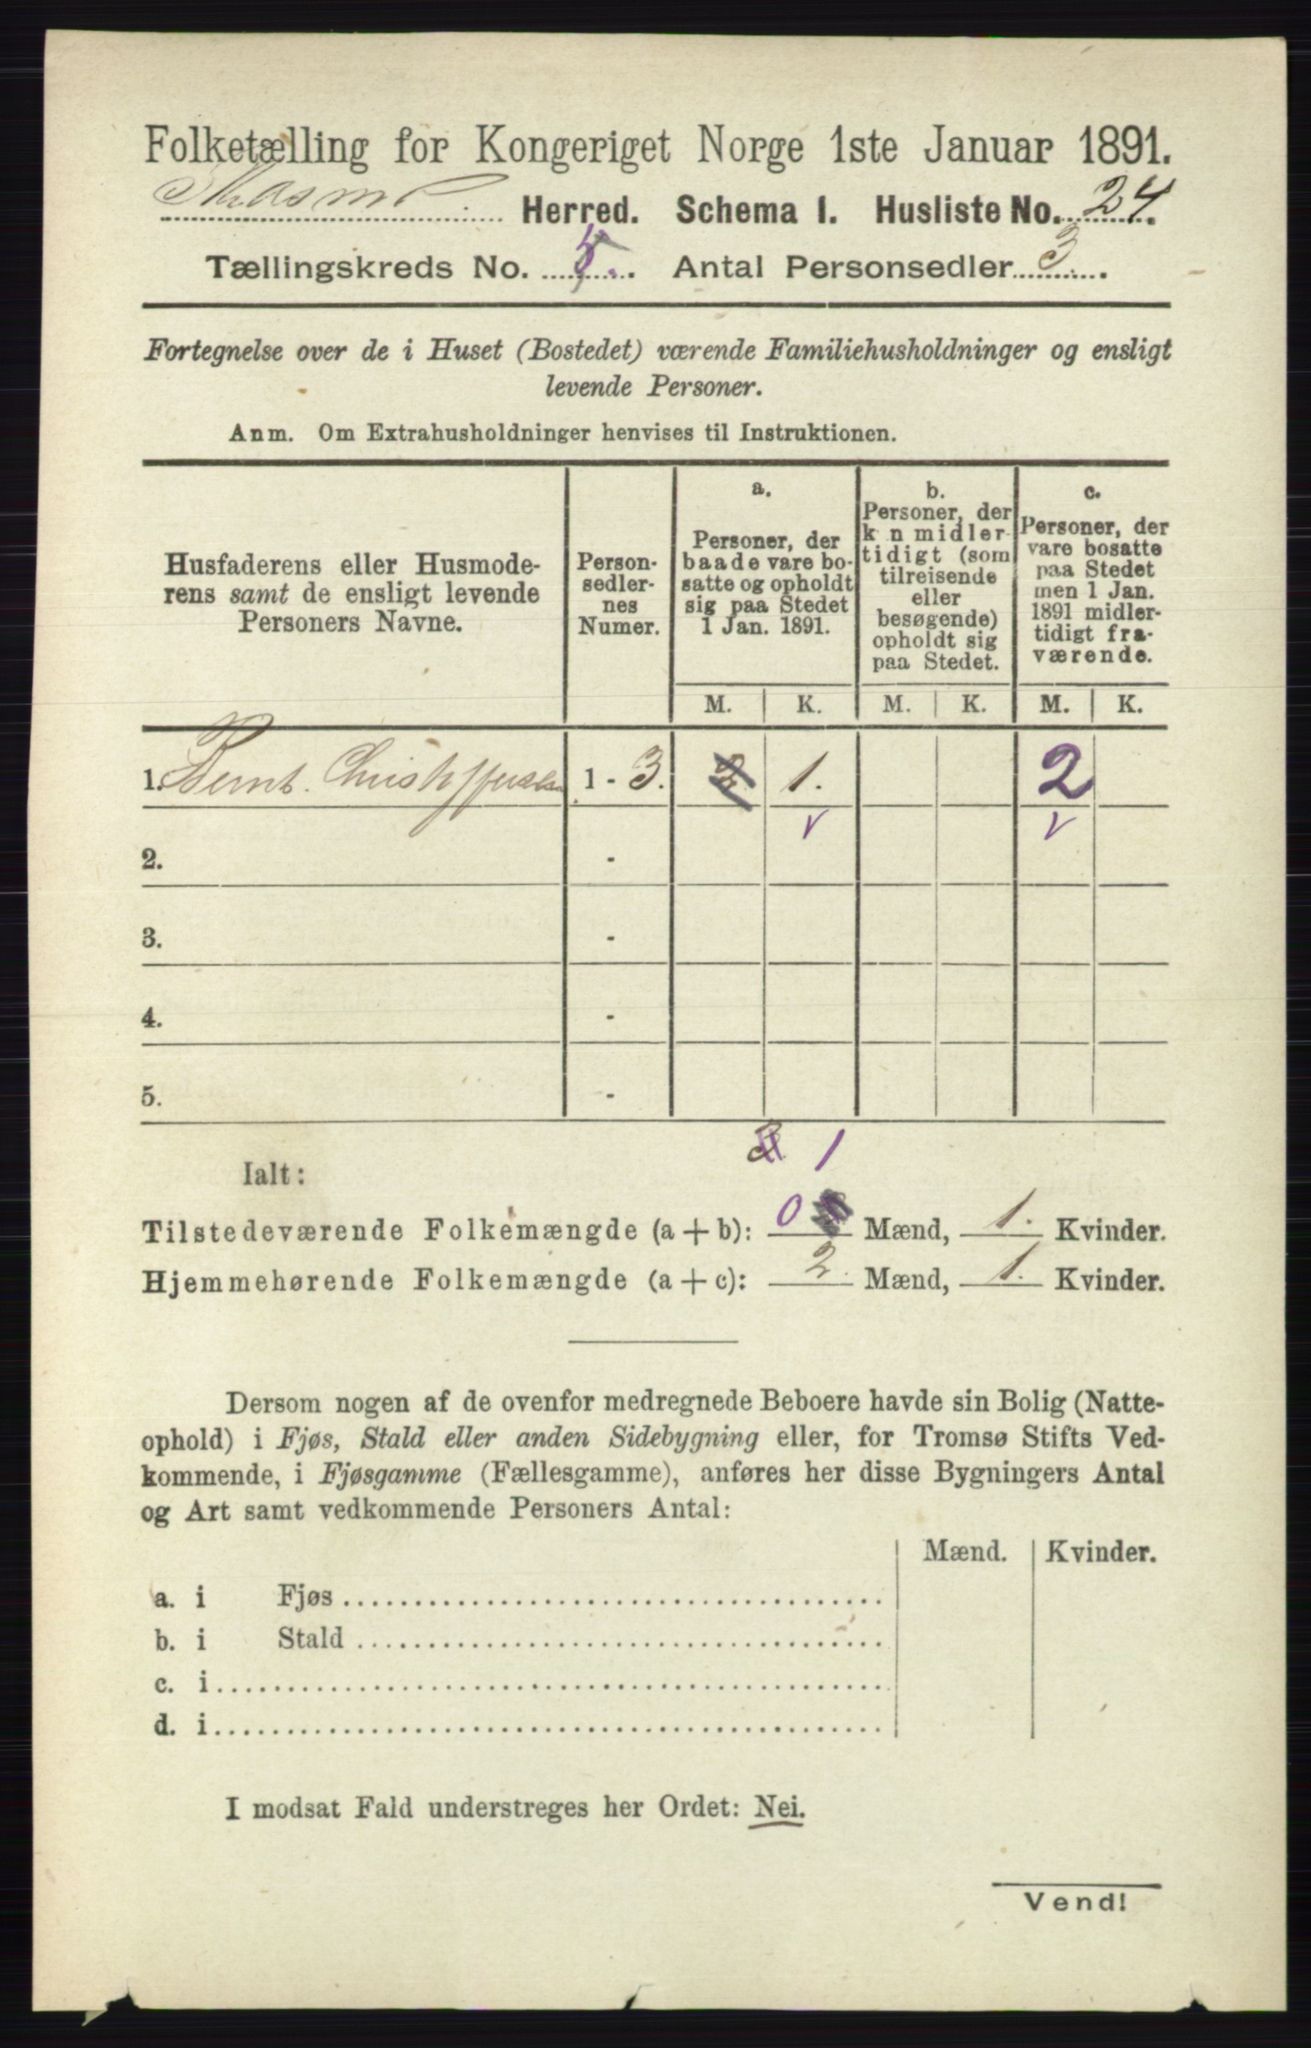 Folketælling for Kongeriget Norge 1ste Januar 1891.
Herred. Schema I. Husliste No. 24.
Tællingskreds No. 5. Antal Personsedler 3.
Fortegnelse over de i Huset (Bostedet) værende Familiehusholdninger og ensligt
levende Personer.
Anm. Om Extrahusholdninger henvises til Instruktionen.
Husfaderens eller Husmode-
rens samt de ensligt levende
Personers Navne.
Person-
sedler-
nes
Numer.
a.
Personer, der
baade vare bo-
satte og opholdt
sig paa Stedet
1 Jan. 1891.
b.
Personer, der
k n midler-
tidigt (som
tilreisende
eller
besøgende)
opholdt sig
paa Stedet.
c.
Personer, der
vare bosatte
paa Stedet
men 1 Jan.
1891 midler-
tidigt fra-
værende.
M. K. M. K. M. K.
1. Bernt 1 - 3. 2 1. 2
2. -
3. -
4. -
5. -
3 1
Ialt:
Tilstedeværende Folkemængde (a + b): 0 Mænd, 1. Kvinder.
Hjemmehørende Folkemængde (a + c): 2. Mænd, 1. Kvinder.
Dersom nogen af de ovenfor medregnede Beboere havde sin Bolig (Natte-
ophold) i Fjøs, Stald eller anden Sidebygning eller, for Tromsø Stifts Ved-
kommende, i Fjøsgamme (Fællesgamme), anføres her disse Bygningers Antal
og Art samt vedkommende Personers Antal:
Mænd. Kvinder.
a. i Fjøs
b. i Stald
c. i
d. i
I modsat Fald understreges her Ordet: Nei.
Vend!